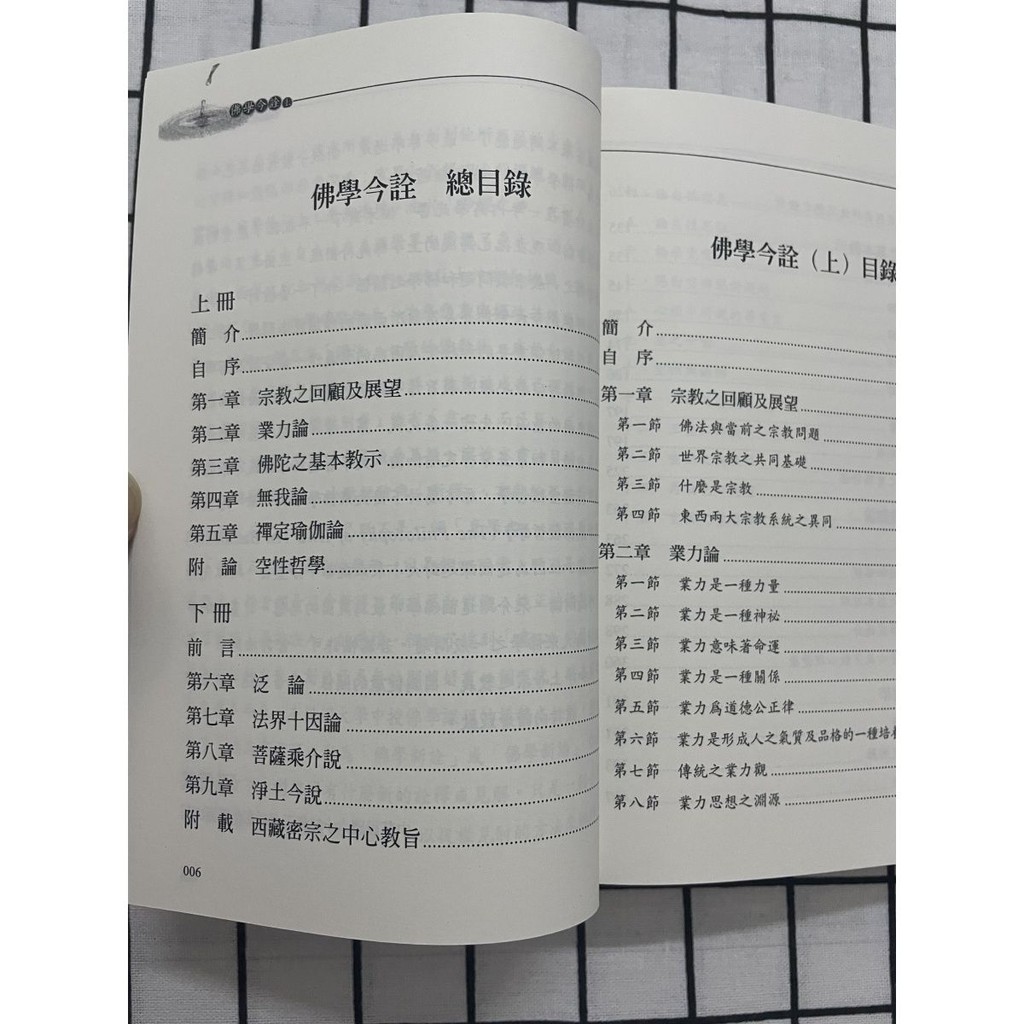 佛學今詮 上
佛學今詮　總目錄
上冊
簡　介
自　序
第一章　宗教之回顧及展望
第二章　業力論
第三章　佛陀之基本教示
第四章　無我論
第五章　禪定瑜伽論
附　論　空性哲學
下冊
前　言
第六章　泛　論
第七章　法界十因論
第八章　菩薩乘介說
第九章　淨土今說
附　載　西藏密宗之中心教旨
006
佛學今詮（上）目錄
簡　介
自　序
第一章　宗教之回顧及展望
第一節　佛法與當前之宗教問題
第二節　世界宗教之共同基礎
第三節　什麼是宗教
第四節　東西兩大宗教系統之異同
第二章　業力論
第一節　業力是一種力量
第二節　業力是一種神祕
第三節　業力意味著命運
第四節　業力是一種關係
第五節　業力爲道德公正律
第六節　業力是形成人之氣質及品格的一種培
第七節　傳統之業力觀
第八節　業力思想之淵源